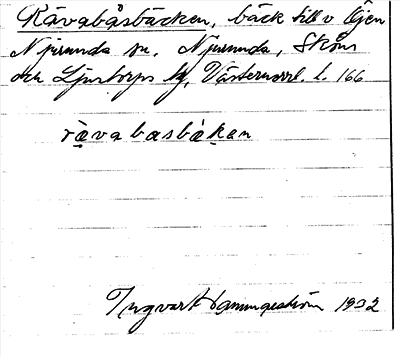 Rävabåsbäcken, bäck till v Öjen
Njurunda sn, Njurunda, Sköns
och Ljustorps tg, Västernorrl. l. 166
rävabasbäkan
Ingvart Hammarström 1932